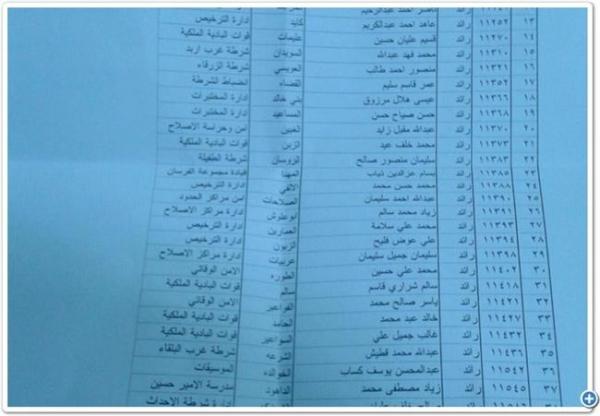 ناصر احمد عبدالرحيم
١٣ ١١٢٥٢ رائد عاهد احمد عبدالكريم كايد ادارة الترخيص
١٤ ١١٢٧٠ رائد قسيم عليان حسين عليمات قوات البادية الملكية
١٥ ١١٣١٠ رائد محمد فهد عبدالله السويدان شرطة غرب اربد
١٦ رائد منصور احمد طالب العويسي شرطة الزرقاء
١٧ ١١٣٥٢ رائد عمر قاسم سليم القضاه انضباط الشرطة
١٨ ١١٣٦٦ رائد عيسى هلال مرزوق بني خالد ادارة المختبرات
١٩ ١١٣٦٨ رائد حسن صياح حسن المساعيد ادارة المختبرات
٢٠ ١١٣٧٠ رائد عبدالله مقبل زايد الغبين امن وحراسة الاصلاح
٢١ ١١٣٧٣ رائد محمد خلف عيد الزبن قوات البادية الملكية
٢٢ ١١٣٨٣ رائد سليمان منصور صالح الروسان شرطة الطفيلة
٢٣ رائد بسام عزالدين ذياب المهنا قيادة مجموعة الفرسان
٢٤ ١١٣٨٨ رائد محمد حسن محمد الالفي ادارة الترخيص
٢٥ ١١٣٩٠ رائد عبدالله احمد سليمان الصلاحات امن مراكز الحدود
٢٦ ١١٣٩١ رائد زياد محمد سالم ابوعلوش ادارة مراكز الاصلاح
٢٧ ١١٣٩٣ رائد محمد علي سلامة العمارين ادارة الترخيص
٢٨ ١١٣٩٤ رائد علي عوض فليح الزبون ادارة الترخيص
٢٩ ١١٣٩٨ رائد سليمان جميل سليمان عربيات ادارة مراكز الاصلاح
٣٠ ١١٤٠٢ رائد محمد علي حسين الطوره الامن الوقائي
٣١ ١١٤١٨ رائد سالم شراري قاسم سالم قوات البادية الملكية
٣٢ ١١٤٢١ رائد ياسر صالح محمد الفواعير الامن الوقائي
٣٣ ١١٤٢٧ رائد خالد عبد محمد الحامد قوات البادية الملكية
٣٤ ١١٤٣٢ رائد غالب جميل علي السواعير قوات البادية الملكية
٣٥ ١١٤٣٦ رائد عبدالله محمد قطيش الشرعه شرطة غرب البلقاء
٣٦ رائد عبدالمحسن يوسف كساب الخوالده الموسيقات
٣٧ ١١٥٤٥ رائد زياد مصطفى محمد الداهود مدرسة الامير حسين
ادارة شرطة الاحداث